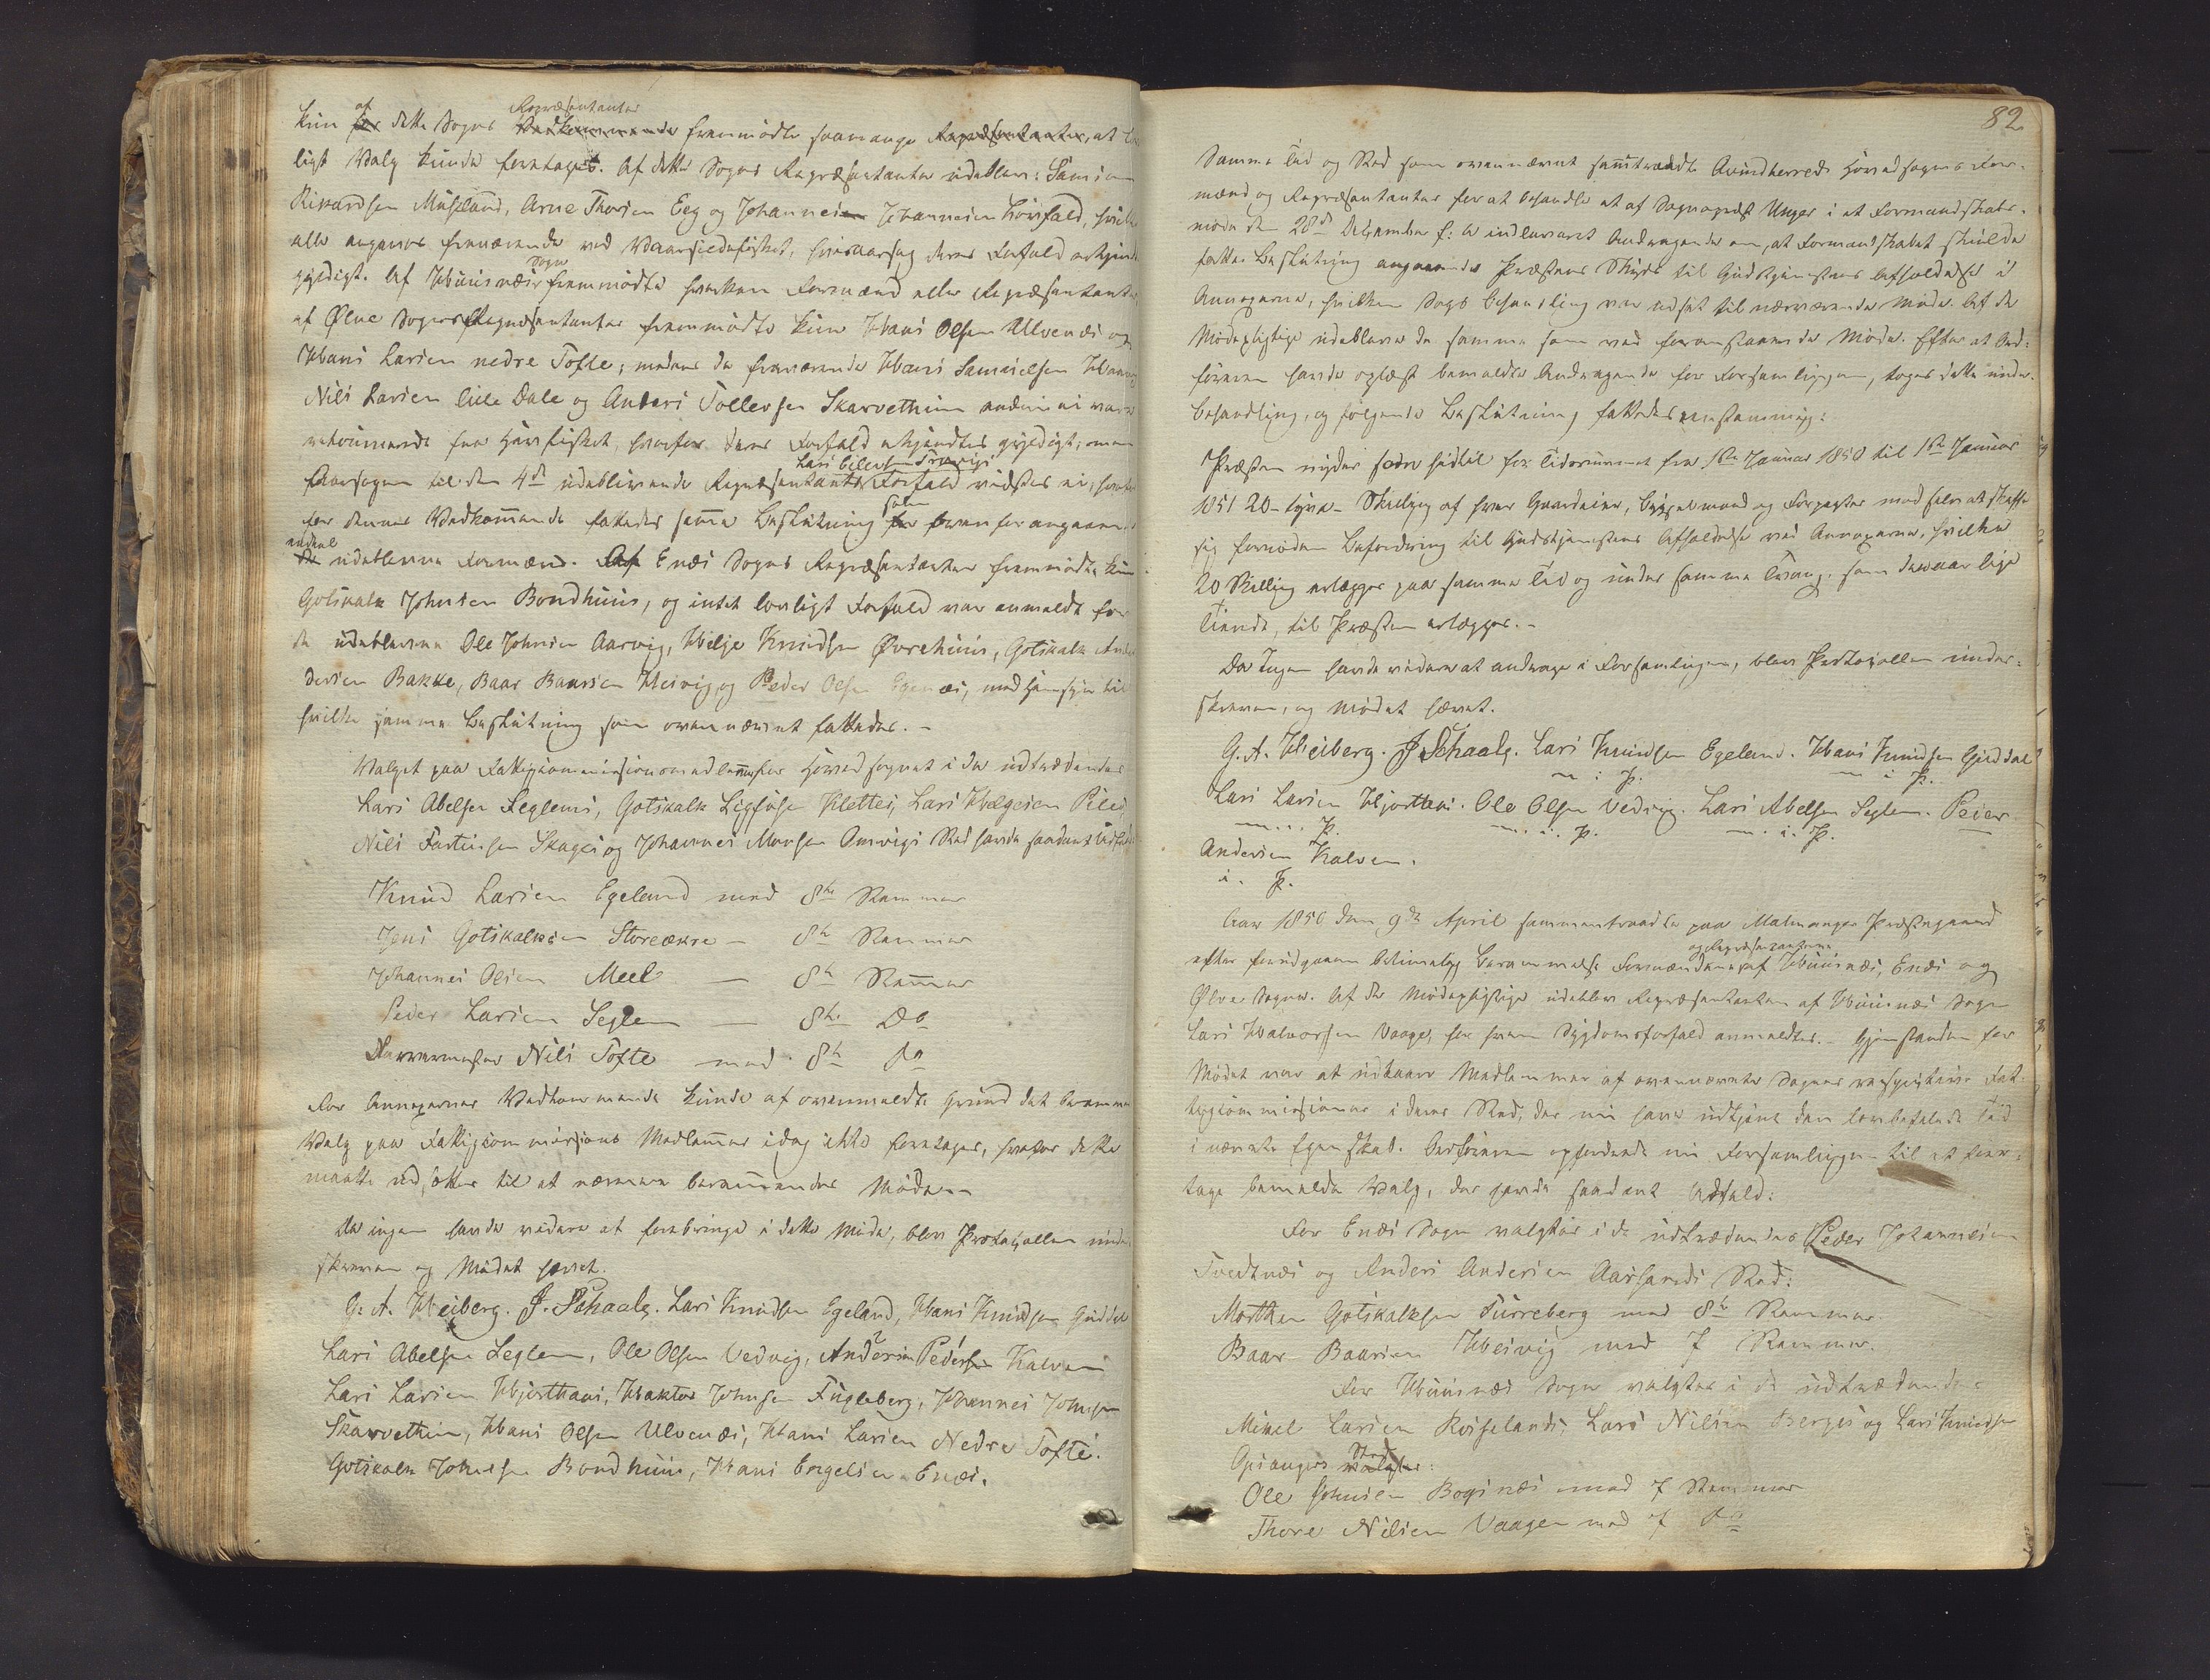 kun af dette Sogns Repræsentanter fremmødte saamange Repræsentanter, at lov-
ligt Valg kunde foretages. Af dette Sogns Repræsentanter udebleve: Samson
Rikardsen Musland, Arne Thorsen Eeg og Johannes Johannesen Løvfald, hvilke
alle angaves fraværende ved Vaarsildefisket, hvisaarsag deres Forfald erkjendtes
gyldigt. Af Huusnæs Sogn fremmødte hverken Formænd eller Repræsentanter
af Ølve Sogns Repræsentanter fremmødte kun Hans Olsen Ulvenæs og
Hans Larsen nedre Tofte; medens de fraværende Hans Samuelsen
Nils Larsen lille Dale og Anders Tollevsen Skarvethun endnu ei vare
retournerede fra Havfisket, hvorfor deres Forfald erkjendtes gyldigt; men
Aarsagen til den 4de udeblivende Repræsentants Lars Forfald vidstes ei, hvorfor
for dennes Vedkommende fattedes samme Beslutning som ovenfor angaaende
udeblevne Formænd. Af Enæs Sogns Repræsentanter fremmødte kun
Gotskalk Johnsen Bondhuus, og intet lovligt Forfald var anmeldt for
de udeblevne Ole Johnsen Aarvig, Helje Knudsen Øvrehuus, Gotskalk An-
dersen Bakke, Baar Baarsen Hesvig, og Peder Olsen Egenæs, med Hensyn til
hvilke samme Beslutning som ovennævnt fattedes. -
Valget paa Fattigcommissionsmedlemmer for Hovedsognet i de udtrædendes
Lars Abelsen Seglems, Gotskalk Sigfusen Klettes, Lars Helgesen
Nils Fartensen Skages og Johannes Monsen Omvigs Sted havde saadant Udfald
Knud Larsen Egeland med 8te Stemmer
Jens Gotskalksen Storeækre - 8te Stemmer
Johannes Olsen Meel - 8te Stemmer
Peder Larsen Seglem - 8te Do
Nils Tofte med 8te Do
For Annexernes Vedkommende kunde af ovenmeldte Grund det berammede
Valg paa Fattigcommissions Medlemmer idag ikke foretages, hvorfor dette
maatte udsættes til et nærmere berammende Møde. -
Da ingen havde videre at frembringe i dette Møde, blev Protocollen under-
skreven og Mødet hævet.
G. A. Heiberg. J. Schaale. Lars Knudsen Egeland, Hans Knudsen Guddal
Lars Abelsen Seglem, Ole Olsen Vedvig, Anders Pedersen Kalven
Lars Larsen Hjorthaus, Haktor Johnsen Fugleberg, Johannes Johnsen
Skarvethun, Hans Olsen Ulvenæs, Hans Larsen Nedre Tofte.
Gotskalk Johnsen Bondhuus, Hans Engelsen Enæs.
82
Samme Tid og Sted som ovennævnt samtraadte Qvindherreds Hovedsogns For-
mænd og Repræsentanter for at behandle et af Sognepræst Unger i et Formandskabs-
møde den 28de December f: A indleveret Andragende om, at Formandskabet skulde
fatte Beslutning angaaende Præstens Skyds til Gudstjenestens Afholdelse i
Annexerne, hvilken Sags Behandling var udsat til nærværende Møde. Af de
Mødepligtige udebleve de samme som ved foranstaaende Møde. Efter at Ord-
føreren havde oplæst bemeldte Andragende for Forsamlingen, toges dette under
Behandling, og følgende Beslutning fattedes eenstemmig:
Præsten nyder som hidtil for Tidsrummet fra 1ste Januar 1850 til 1ste Januar
1851 20 - tyve - Skilling af hver Gaardeier, Bygselmand og Forpagter mod selv at skaffe
sig fornøden Befordring til Gudstjenestens Afholdelse ved Annexerne, hvilke
20 Skilling erlægges paa samme Tid og under samme Tvang, som den aarlige
Tiende, til Præsten erlægges. -
Da Ingen havde videre at andrage i Forsamlingen, blev Protocollen under-
skreven, og Mødet hævet.
G. A. Heiberg. J. Schaale. Lars Knudsen Egeland. Hans Knudsen Guddal
m. i P. m. i P.
Lars Larsen Hjorthaus. Ole Olsen Vedvig. Lars Abelsen Seglem. Peder
m. i P. m. i. P. m. i. P.
Andersen Kalven.
i. P.
Aar 1850 den 9de April sammentraadte paa Malmanger Præstegaard
efter forudgaaen betimelig Berammelse Formændene og Repræsentanterne af Huusnæs, Enæs og
Ølve Sogne. Af de Mødepligtige udeblev Repræsentanten af Huusnæs Sogn
Lars Halvorsen Vaage, for hvem Sygdomsforfald anmeldtes. - Gjenstanden for
Mødet var at udkaare Medlemmer af ovennævnte Sognes respective Fat-
tigcommissioner i deres Sted, der nu have udtjent den lovbefalede Tid
i nævnte Egenskab. Ordføreren opfordrede nu Forsamlingen til at fore-
tage bemeldte Valg, der havde saadant Udfald:
For Enæs Sogn valgtes i de udtrædendes Peder Johannesen
Tvedtnæs og Anders Andersen Aarsands Sted:
Morthen Gotskalksen Furreberg med 8te Stemmer.
Baar Baarsen Hesvig med 7 Stemmer.
For Huusnæs Sogn valgtes i de udtrædendes
Mikel Larsen Røsselands, Lars Nilsen Berges og Lars Knudsen
Opsangers Sted:
Ole Johnsen Bogsnæs med 7 Stemmer
Thore Nilsen Vaagen med 7 Do